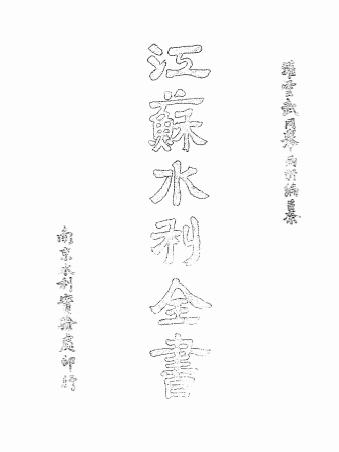 灌雲武同舉兩軒編纂
江蘇水利全書
南京水利實驗處印行